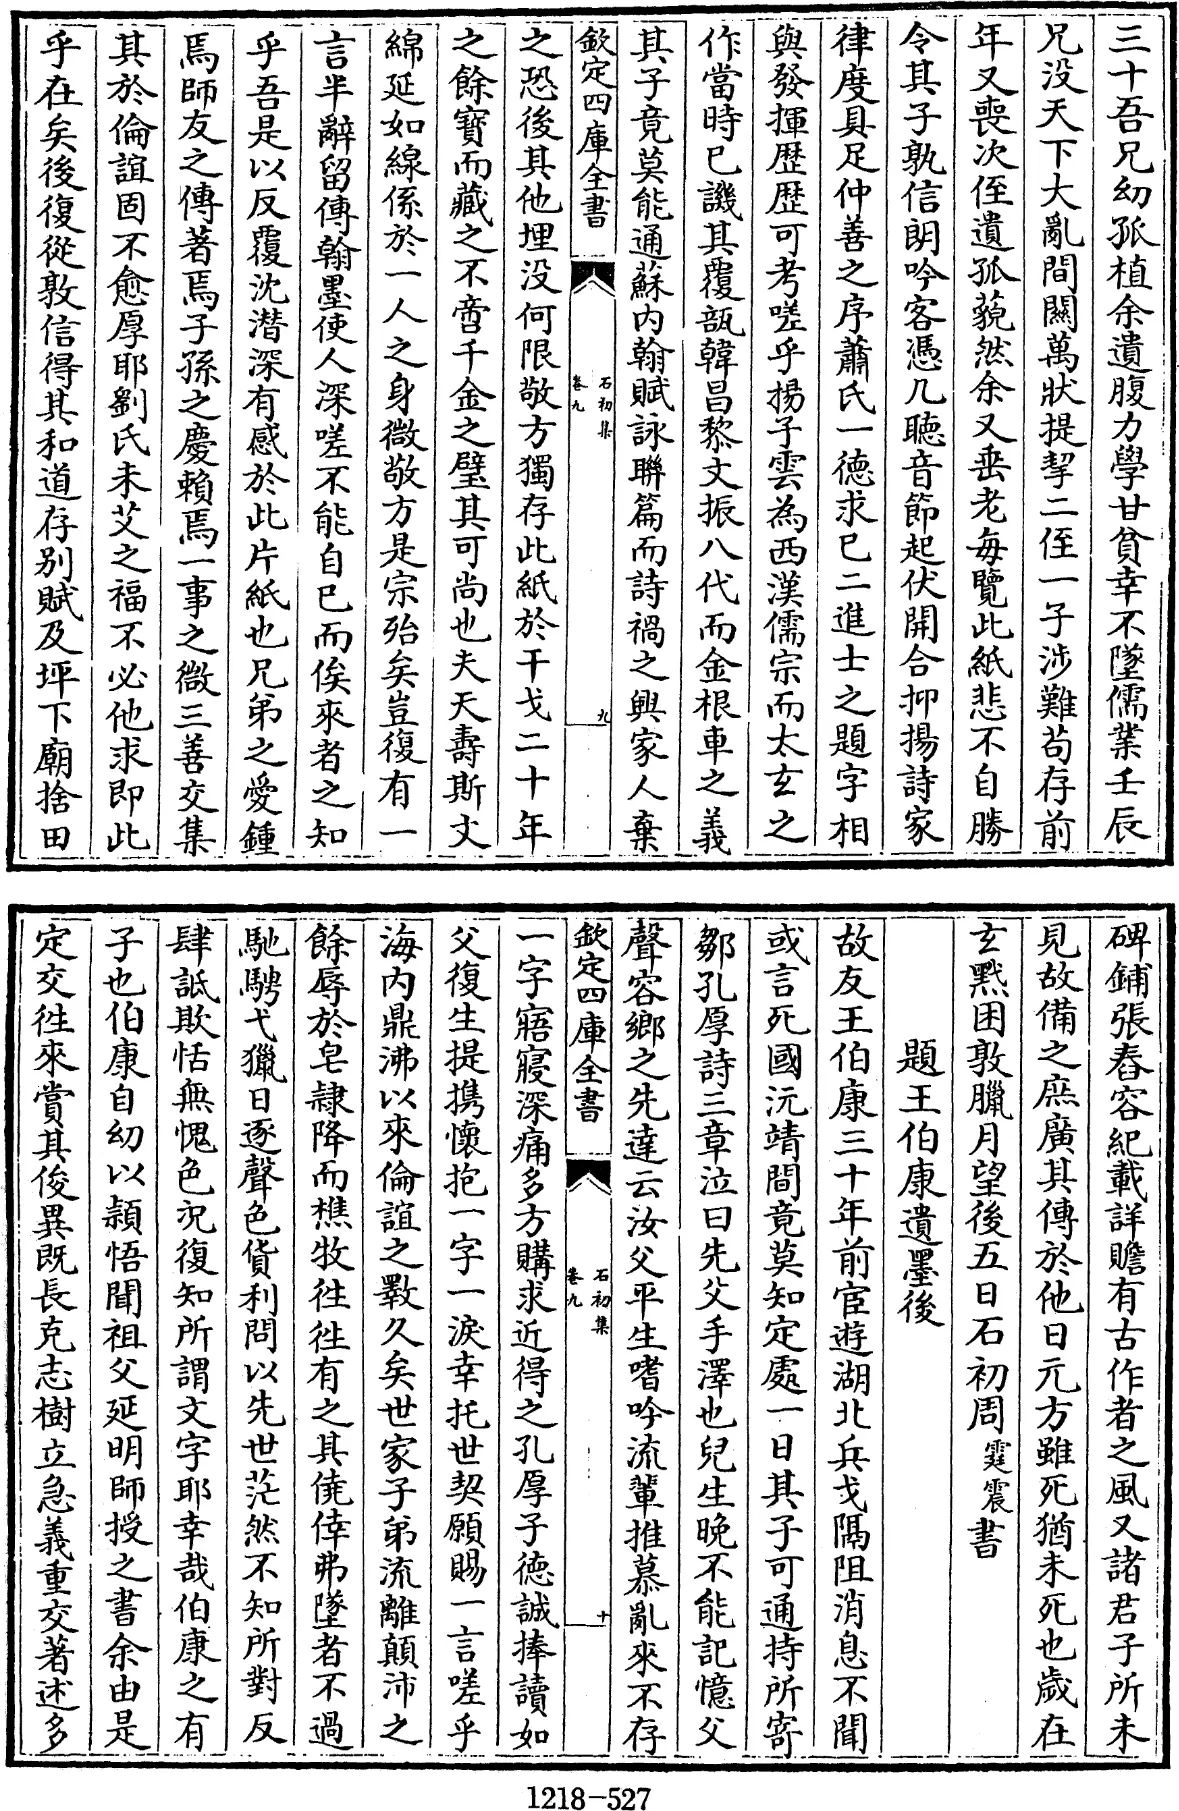 三十吾兄幼孤植余遺腹力學甘貧幸不墜儒業壬辰
兄没天下大亂間關萬狀提挈二侄一子涉難苟存前
年又喪次侄遺孤藐然余又垂老每覽此紙悲不自勝
令其子孰信朗吟客憑几聽音節起伏開合抑揚詩家
律度具足仲善之序蕭氏一德求已二進士之題字相
與發揮歷歷可考嗟乎揚子雲為西漢儒宗而太玄之
作當時已譏其覆瓿韓昌黎文振八代而金根車之義
其子竟莫能通蘇内翰賦詠聯篇而詩禍之興家人棄
欽定四庫全書
石初集
卷九
九
之恐後其他埋没何限敬方獨存此紙於干戈二十年
之餘寳而藏之不啻千金之璧其可尚也夫天壽斯文
綿延如線係於一人之身微敬方是宗殆矣豈復有一
言半辭留傳翰墨使人深嗟不能自已而俟來者之知
乎吾是以反覆沈潛深有感於此片紙也兄弟之愛鍾
焉師友之傳著焉子孫之慶賴焉一事之微三善交集
其於倫誼固不愈厚耶劉氏未艾之福不必他求即此
乎在矣後復從敦信得其和道存别賦及坪下廟捨田
碑鋪張舂容紀載詳贍有古作者之風又諸君子所未
見故備之庶廣其傳於他日元方雖死猶未死也歲在
玄黓困敦臘月望後五日石初周霆震書
題王伯康遺墨後
故友王伯康三十年前宦遊湖北兵戈隔阻消息不聞
或言死國沅靖間竟莫知定處一日其子可通持所寄
鄒孔厚詩三章泣曰先父手澤也兒生晚不能記憶父
聲容鄉之先達云汝父平生嗜吟流輩推慕亂來不存
欽定四庫全書
石初集
卷九
十
一字寤寐深痛多方購求近得之孔厚子德誠捧讀如
父復生提携懷抱一字一淚幸托世契願賜一言嗟乎
海内鼎沸以來倫誼之斁久矣世家子弟流離顛沛之
餘辱於皂隷降而樵牧往往有之其僥倖弗墜者不過
馳騁弋獵日逐聲色貨利問以先世茫然不知所對反
肆詆欺恬無愧色况復知所謂文字耶幸哉伯康之有
子也伯康自幼以穎悟聞祖父延明師授之書余由是
定交往來賞其俊異既長克志樹立急義重交著述多
1218-527